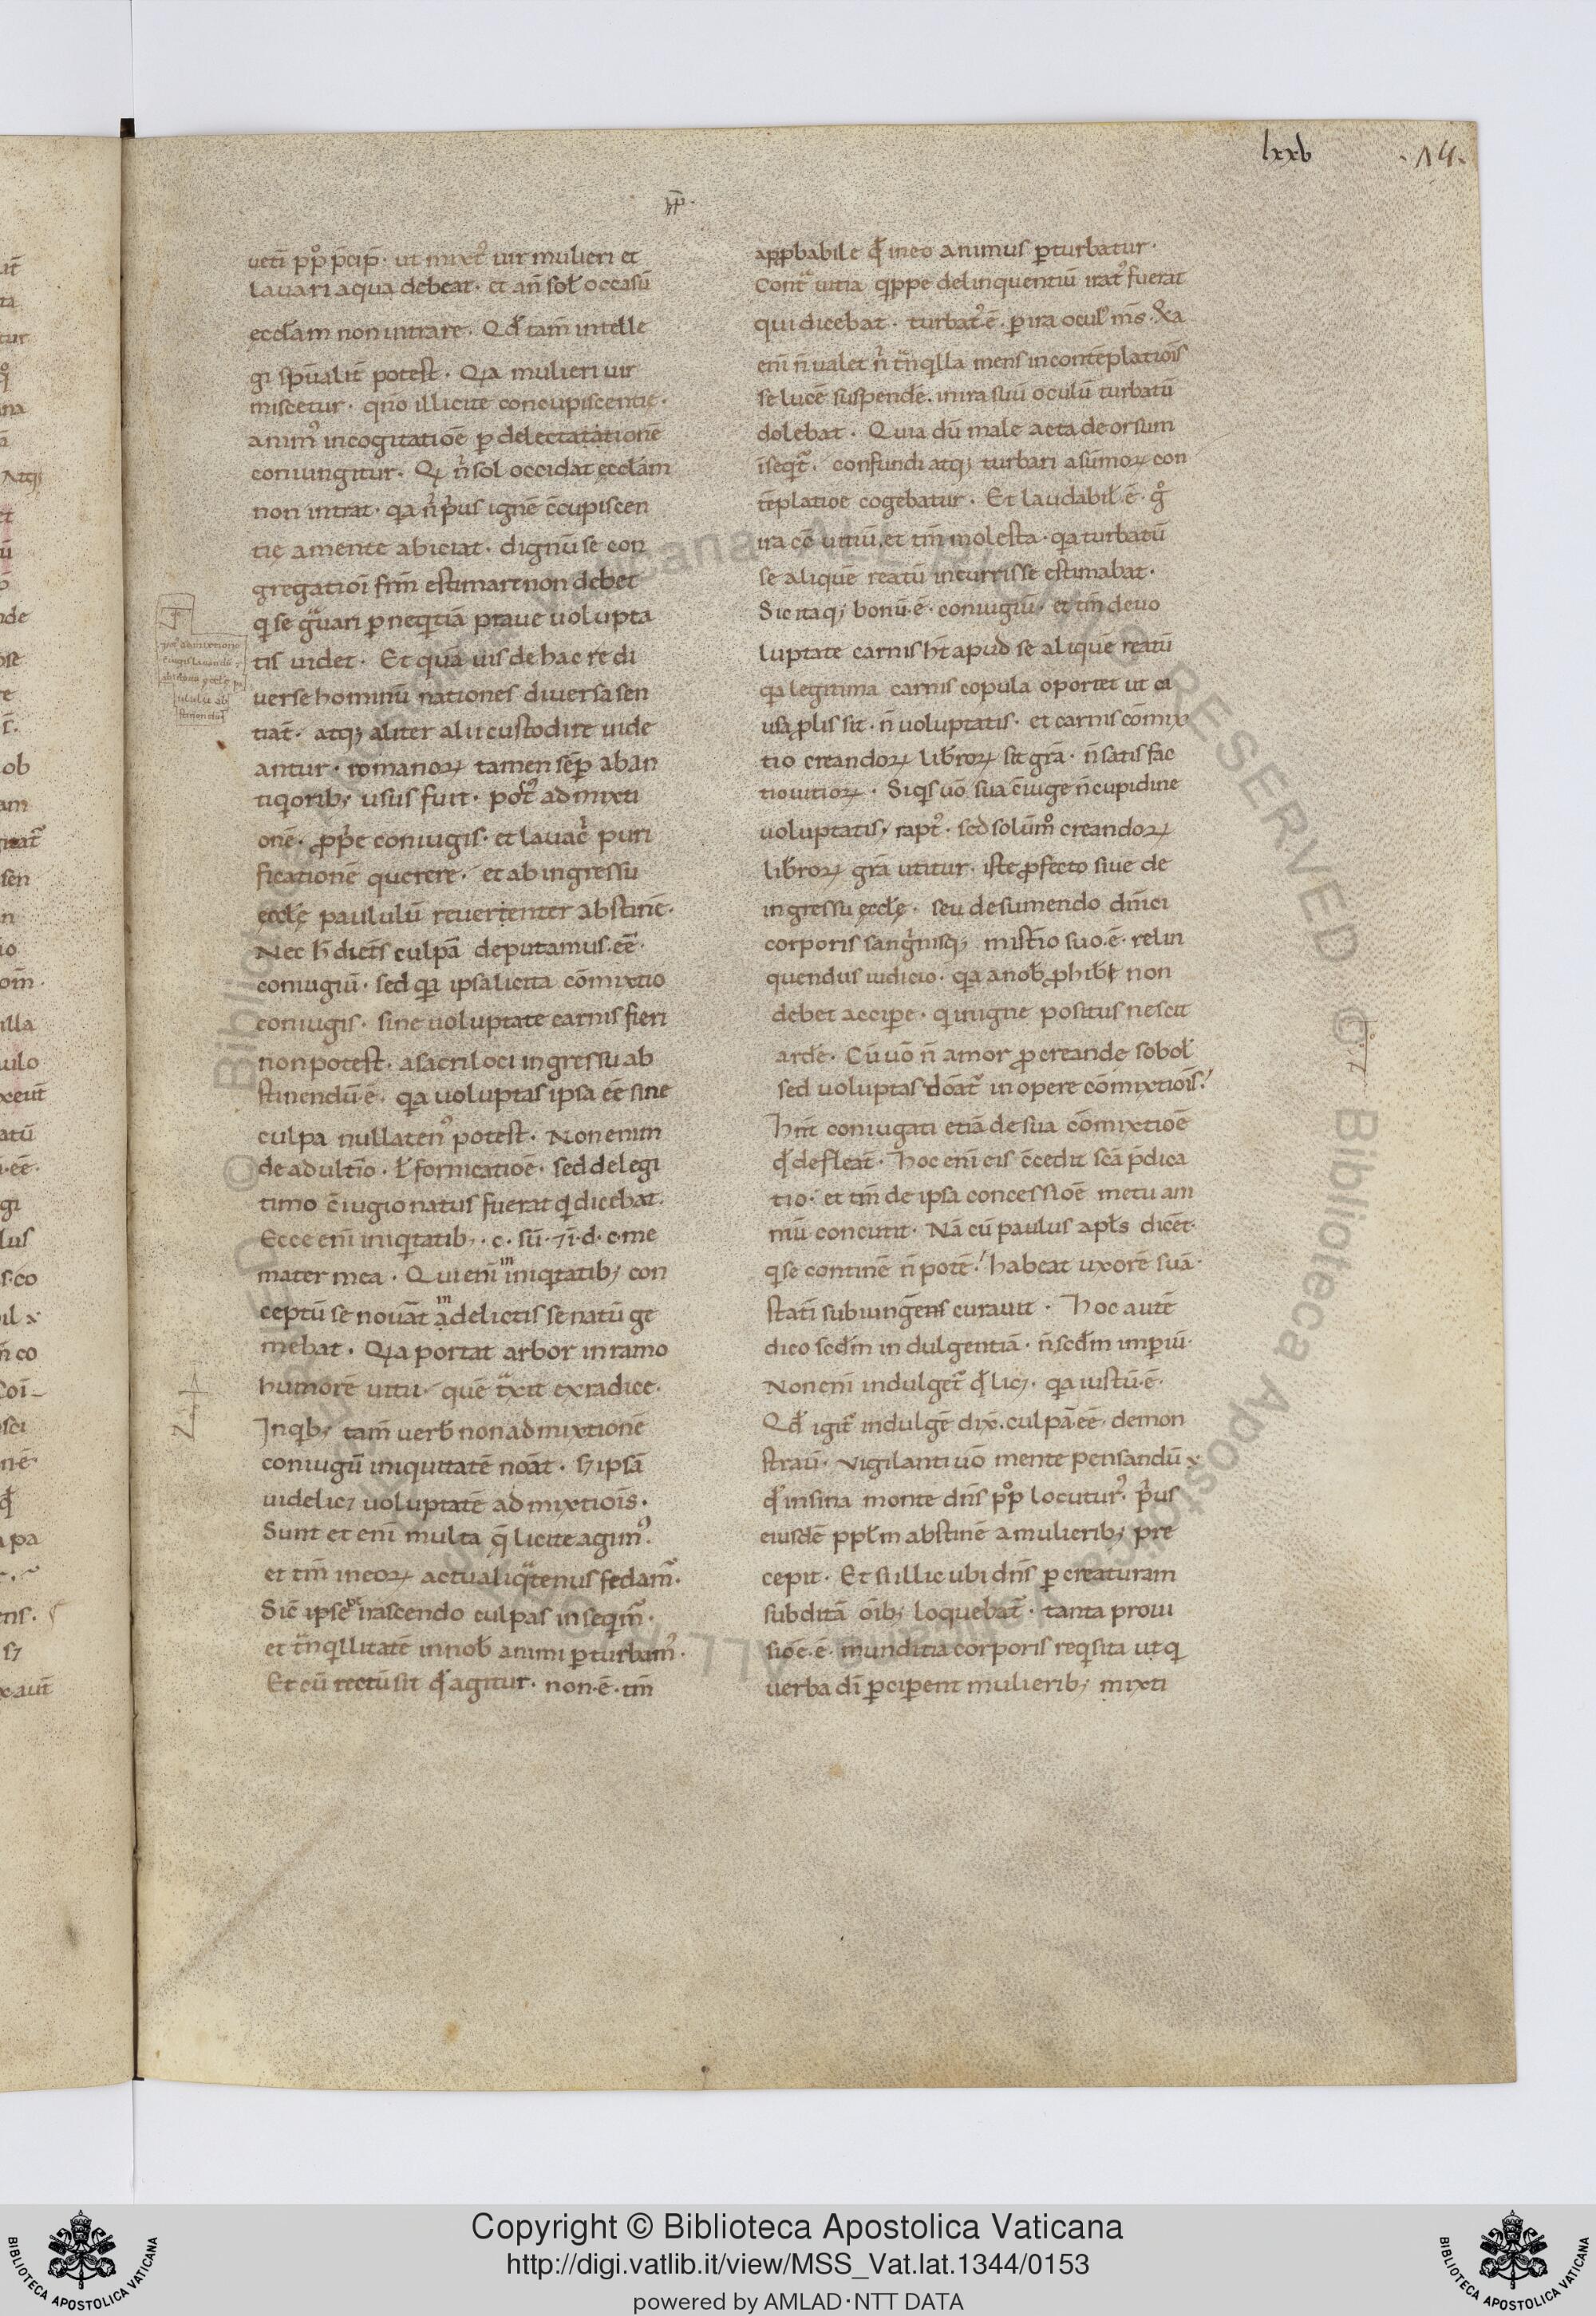 lxxb
·14·
uetī pp̊ p̄cip̄· ut mixt᾽ uir mulieri et
lauari aqua debeat· et an̄ sol̄ occasū
eccl̄am non intrare· Qd̄ tam̄ intelle
gi sp̄ualit̄ potest· Qa mulieri uir
miscetur· qn̄o illicite concupiscentię·
anim᾽ incogitatiōē p delectatationē
coniungitur· Q n̄ sol occidat eccl̄am
non intrat· qa n̄ p̄us ignē c̄cupiscen
tię amente abiciat· dignū se con
gregatioī frm̄ estimare non debet
q se gͣuari p neqtiā praue uolupta
tis uidet· Et quā uis de hac re di
uerse hominū nationes diuersa sen
tiāt· atq; aliter alii custodire uide
antur· romanoꝝ tamen sēp aban
tiqorib; usus fuit· pōt᾽ admixti
onē· ꝓp̄e coniugis· et lauac̄ puri
ficationē querere· et ab ingressu
eccl̄ę paululū reuerenter abstinē·
Nec h̄ dic̄tīs culpā deputamus·eē·
coniugiū· sed qa ipsa licita cōmixtio
coniugis· sine uoluptate carnis fieri
non potest· asacri loci ingressu ab
stinendū·ē· qa uoluptas ipsa eē sine
culpa nullaten᾽ potest· Non enim
de adultīo· ł fornicatiōē· sed de legi
timo c̄iugio natus fuerat q dicebat·
Ecce eni iniqtatib;· c· sū· ⁊ i· d· c· me
mater mea· Qui eni in iniqtatib; con
ceptū se nouāt in a delictis se natū ge
mebat· Qa portat arbor in ramo
humorē uitii· quē tͣxit ex radice·
Inqib; tam̄ uerb̄ non admixtionē
coniugū iniquitatē noāt· s; ipsā
uidelic; uoluptatē admixtiois·
Sunt et eni multa q̄ licite agim᾽·
et tm̄ in eoꝝ actu aliqͣtenus fedam̄·
Sic̄ ipsē irascendo culpas inseqm̄·
et tͣnqllitatē in nob̄ animi pturbam᾽·
Et cū rectū sit qđ agitur· non·ē·tm̄
app̄babile qđ in eo animus pturbatur·
Contͣ uitia qppe delinquentiū irat᾽ fuerat
qui dicebat· turbat᾽·ē· p ira ocul᾽ m̄s·
eni n̄ ualet n̄ tͣnqlla mens in contēplatiois
se lucē suspendē· in ira suū oculū turbatū
dolebat· Quia dū male acta deorsum
iseqt᾽· confundi atq; turbari asūmoꝝ con
tēplatioe cogebatur· Et laudabil̄·ē· g̊
ira cō uitiū· et tm̄ molesta· qa turbatū
se aliquē reatū incurrisse estimabat·
Sic itaq; bonū·ē· coniugiū· et tm̄ de uo
luptate carnis h̄t apud se aliquē reatū
qa legitima carnis copula oportet ut ca
usa plis sit· n̄ uoluptatis· et carnis cōmix
tio creandoꝝ libroꝝ sit grā· n̄ satis fac
tio uitioꝝ· Siqs uō sua c̄iuge n̄ cupidine
uoluptatis· rapt᾽· sed solūm̊ creandoꝝ
libroꝝ grā utitur· iste ꝓfecto siue de
ingressu eccl̄ę· seu de sumendo dn̄ici
corporis sangnisq; mist̄io suo·ē· relin
quendus iudicio· qa anob̄ ꝓhib̄i non
debet accipe· q in igne positus nescit
ardē· Cū uō n̄ amor ꝓcreande sobol̄
sed uoluptas dōat᾽ in opere cōmixtiois·
hn̄t coniugati etiā de sua cōmixtiōē
qđ defleāt· hoc eni eis c̄cedit sc̄a p̄dica
tio· et tm̄ de ipsa concessiōē metu ani
mū concutit· Nā cū paulus apl̄s dicēt·
q se continē n̄ potē· habeat uxorē suā·
statī subiungens curauit· hoc autē
dico sed̄m indulgentiā· n̄ sed̄m impiū·
Non eni indulget᾽ qđ lic;· qa iustū·ē·
Qd̄ igit᾽ indulgē dix̄· culpā eē· demon
strau· Vigilanti uō mente pensandū
qđ in sina monte dn̄s pp̊ locutur᾽· p̄us
eiusdē ppl̄m abstinē a mulierib; pre
cepit· Et si illic ubi dn̄s p creaturam
subditā ōib; loquebat᾽· tanta proui
siōē·ē· munditia corporis reqsita ut q
uerba dī pciperent mulierib; mixti
Copyright © Biblioteca Apostolica Vaticana
http://digi.vatlib.it/view/MSS_Vat.lat.1344/0153
powered by AMLAD·NTT DATA